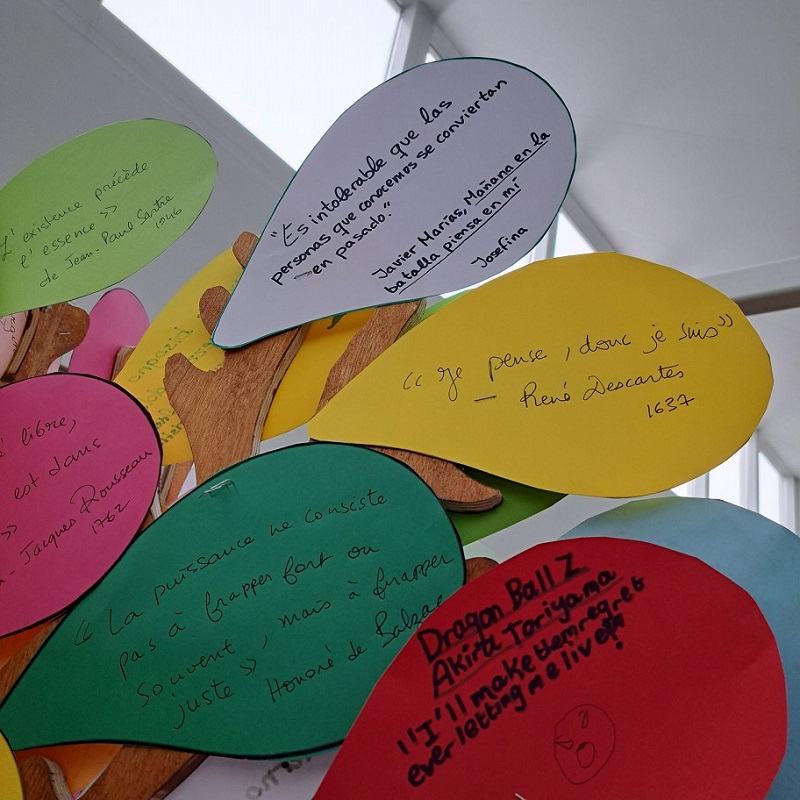 L'existence précède
l'essence »
de Jean-Paul Sartre
1946
"Es intolerable que las
personas que conocemos se conviertan
en pasado."
Javier Marías, Mañana en la
batalla piensa en mí
Josefina
« Je pense, donc je suis »
— René Descartes
1637
libre,
est dans
»
- Jacques Rousseau
1762
« La puissance ne consiste
pas à frapper fort ou
souvent, mais à frapper
juste » Honoré de Balzac
Dragon Ball Z
Akira Toriyama
"I'll make them regret
ever letting me live!"